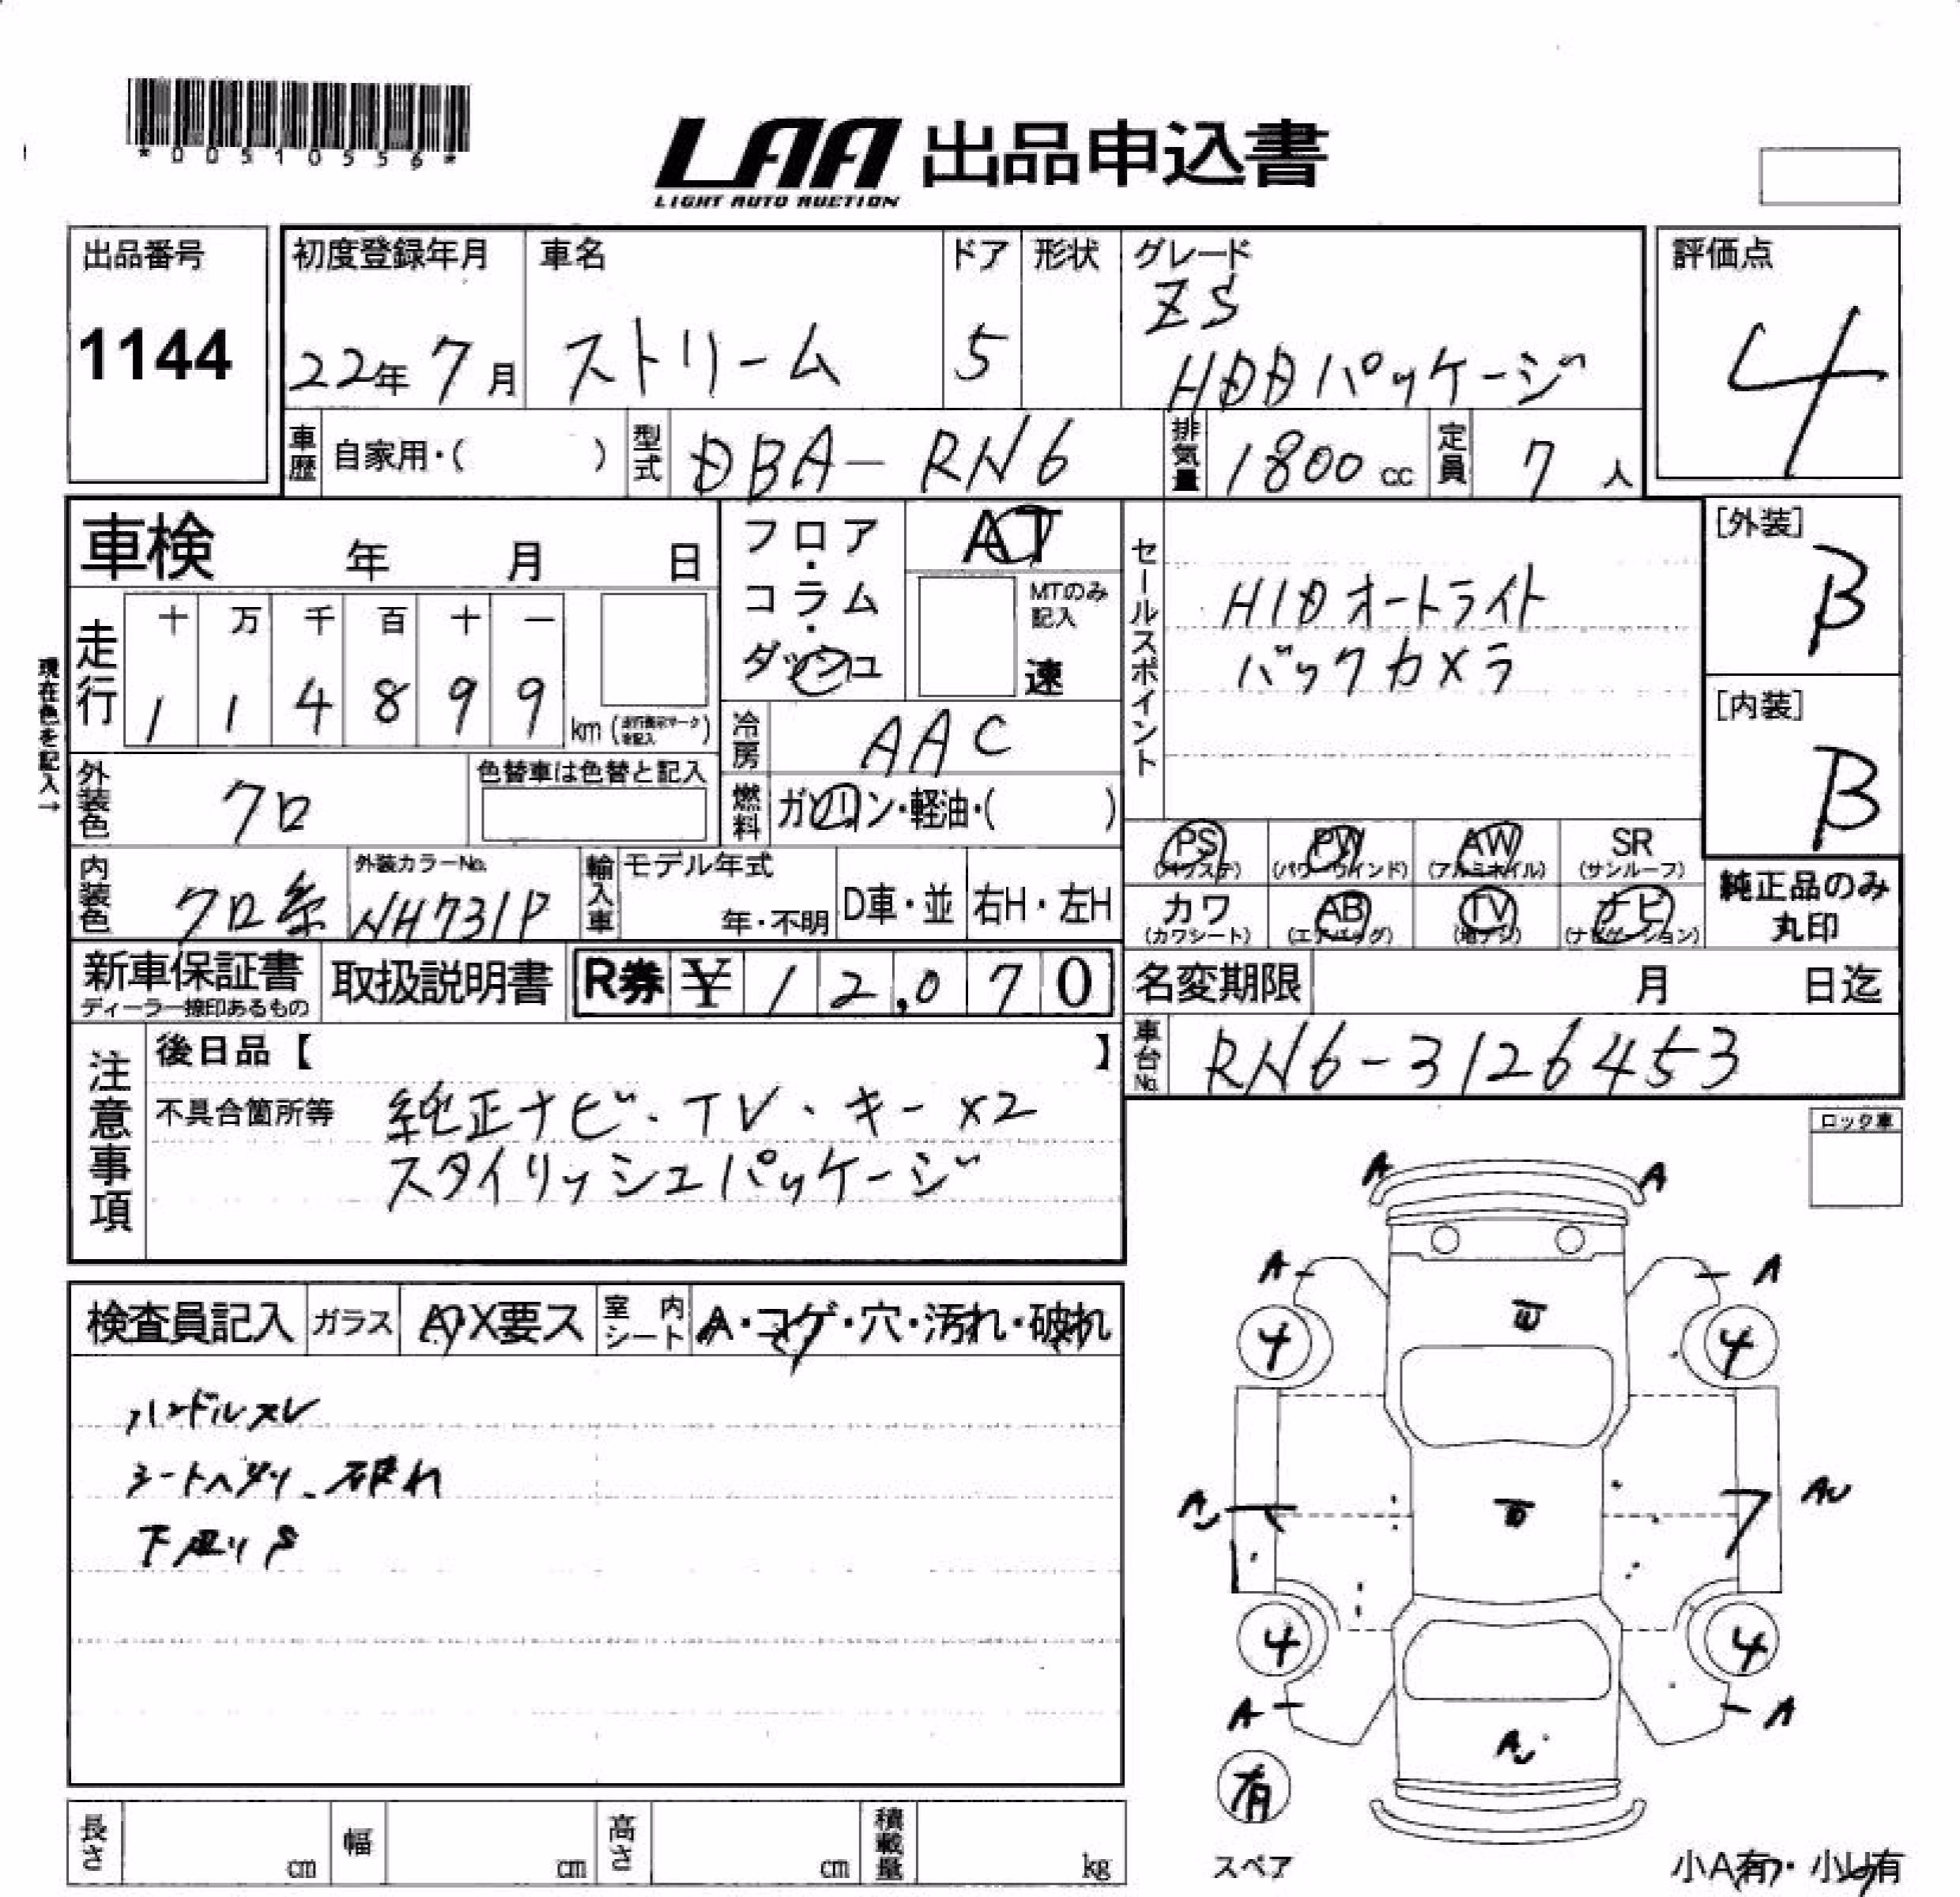 *00510556*
LAA 出品申込書
LIGHT AUTO AUCTION
出品番号
1144
初度登録年月
22年 7月
車名
ストリーム
ドア
5
形状
グレード
ZS
HDDパッケージ
評価点
4
車歴 自家用・( )
型式 DBA-RN6
排気量 1800 cc
定員 7 人
車検 年 月 日
走行
十 万 千 百 十 一
1 1 4 8 9 9
km (走行表示マーク を記入)
現在色を記入→
フロア・コラム・ダッシュ
AT
MTのみ記入
速
冷房 AAC
燃料 ガソリン・軽油・( )
セールスポイント
HIDオートライト
バックカメラ
[外装]
B
[内装]
B
外装色 クロ
色替車は色替と記入
内装色 クロ系
外装カラーNo.
NH731P
輸入車
モデル年式
年・不明
D車・並
右H・左H
PS (パワステ)
PW (パワーウインド)
AW (アルミホイル)
SR (サンルーフ)
カワ (カワシート)
AB (エアバッグ)
TV (地デジ)
ナビ (ナビゲーション)
純正品のみ
丸印
新車保証書
ディーラー捺印あるもの
取扱説明書
R券 ¥ 12,070
名変期限 月 日迄
車台No. RN6-3126453
注意事項
後日品【 】
不具合箇所等
純正ナビ・TV・キー×2
スタイリッシュパッケージ
ロック車
検査員記入
ガラス A・X要ス
室内シート A・コゲ・穴・汚れ・破れ
ハンドルスレ
シートヘタリ、破れ
下廻りS
A A
A A
4 4
AU
4 4
A A
AU
有
スペア
小A有・小U有
長さ cm
幅 cm
高さ cm
積載量 kg